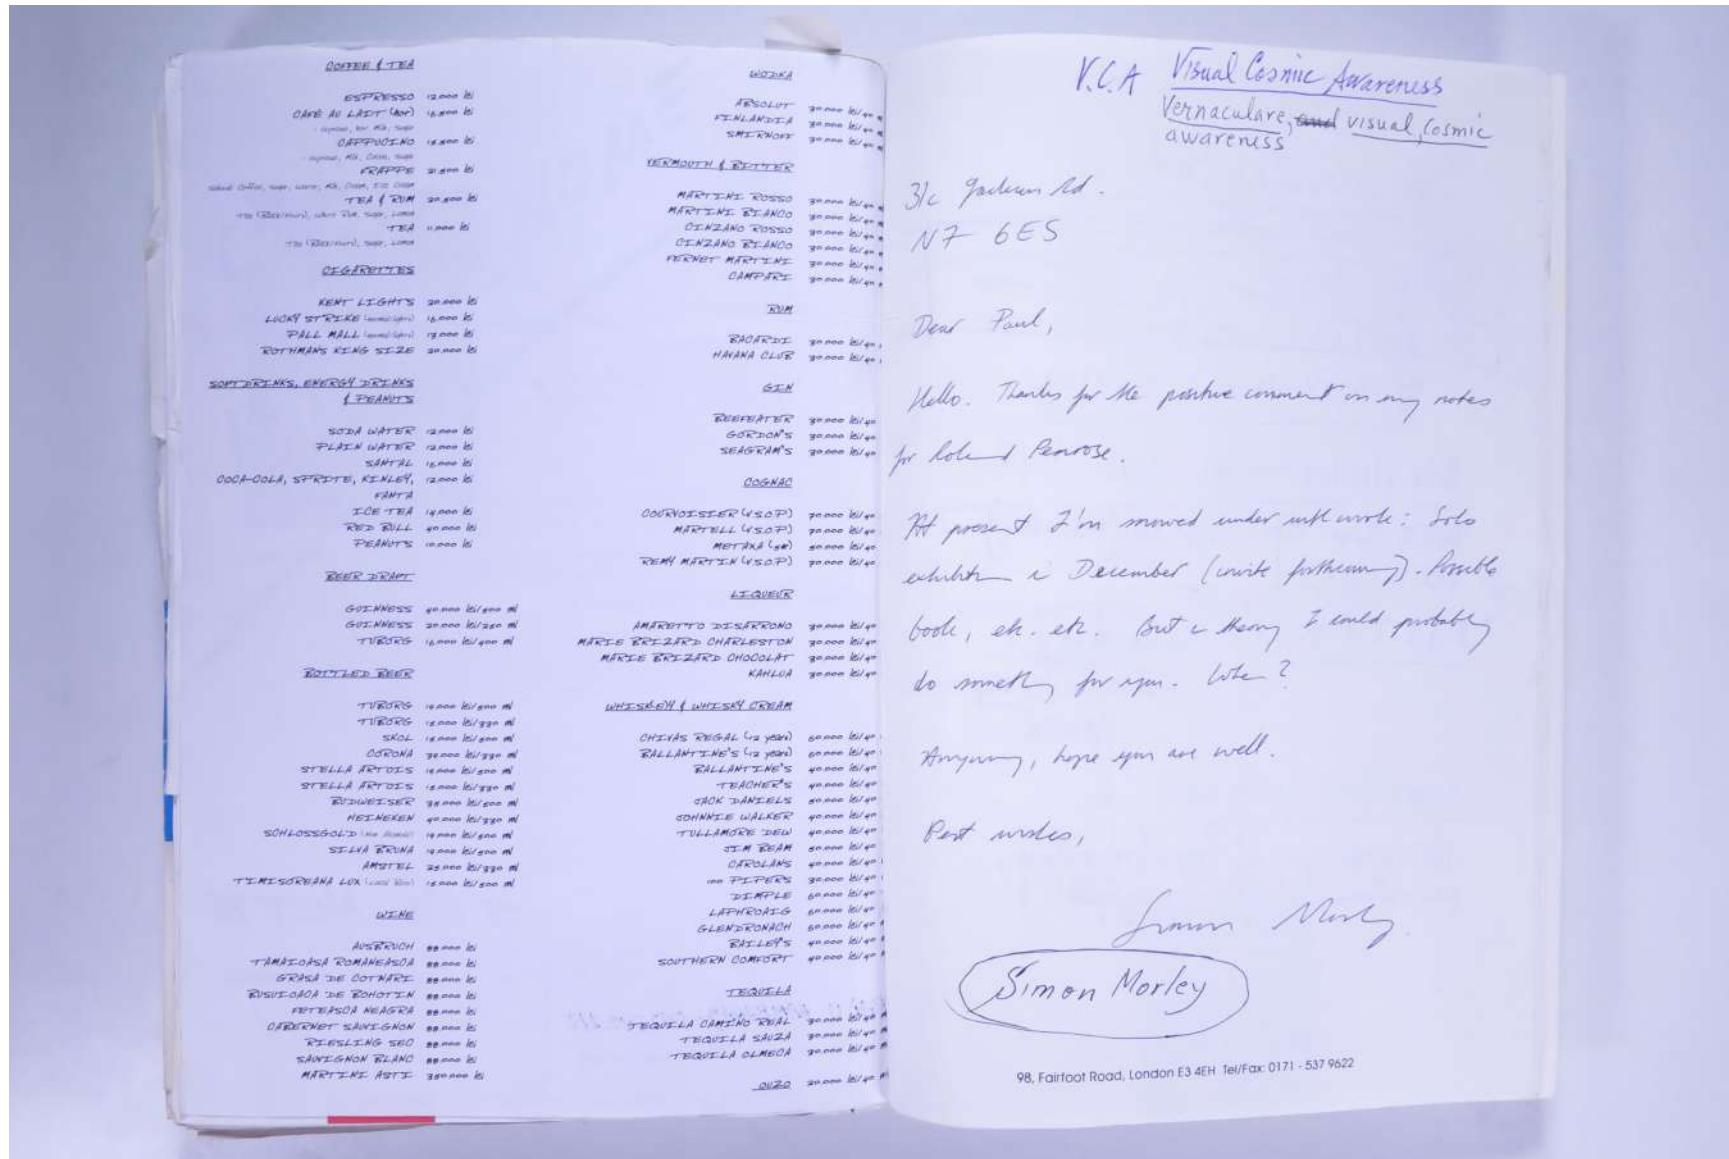 COFFEE & TEA
ESPRESSO 12.000 lei
CAFE AU LAIT (hot) 16.500 lei
- espresso, hot milk, sugar
CAPPUCINO 18.500 lei
- espresso, Milk, Cream, sugar
FRAPPE 21.500 lei
Coffee, sugar, water, milk, Cream, Ice Cream
TEA & RUM 20.500 lei
Tea (Black/Fruits), water Rum, sugar, Lemon
TEA 11.000 lei
Tea (Black/Fruits), sugar, Lemon
CIGARETTES
KENT LIGHTS 20.000 lei
LUCKY STRIKE 16.000 lei
PALL MALL 13.000 lei
ROTHMANS KING SIZE 20.000 lei
SOFT DRINKS, ENERGY DRINKS
& PEANUTS
SODA WATER 12.000 lei
PLAIN WATER 12.000 lei
SANTAL 15.000 lei
COCA-COLA, SPRITE, KINLEY, 12.000 lei
FANTA
ICE TEA 14.000 lei
RED BULL 40.000 lei
PEANUTS 10.000 lei
BEER DRAFT
GUINNESS 40.000 lei/500 ml
GUINNESS 20.000 lei/250 ml
TUBORG 16.000 lei/400 ml
BOTTLED BEER
TUBORG lei/500 ml
TUBORG lei/330 ml
SKOL lei/500 ml
CORONA lei/330 ml
STELLA ARTOIS lei/500 ml
STELLA ARTOIS lei/330 ml
BUDWEISER lei/500 ml
HEINEKEN 40.000 lei/330 ml
SCHLOSSGOLD lei/500 ml
SILVA BRUNA lei/500 ml
AMSTEL lei/330 ml
TIMISOREANA LUX (Local Beer) lei/500 ml
WINE
AUSBRUCH 88.000 lei
TAMAIOASA ROMANEASCA 88.000 lei
GRASA DE COTNARI 88.000 lei
BUSUIOACA DE BOHOTIN 88.000 lei
FETEASCA NEAGRA 88.000 lei
CABERNET SAUVIGNON 88.000 lei
RIESLING SEC 88.000 lei
SAUVIGNON BLANC 88.000 lei
MARTINI ASTI 350.000 lei
WODKA
ABSOLUT 30.000 lei/40
FINLANDIA 30.000 lei/40
SMIRNOFF 30.000 lei/40
VERMOUTH & BITTER
MARTINI ROSSO 30.000 lei/40
MARTINI BIANCO 30.000 lei/40
CINZANO ROSSO 30.000 lei/40
CINZANO BIANCO 30.000 lei/40
FERNET MARTINI 30.000 lei/40
CAMPARI 30.000 lei/40
RUM
BACARDI 30.000 lei/40
HAVANA CLUB 30.000 lei/40
GIN
BEEFEATER 30.000 lei/40
GORDON'S 30.000 lei/40
SEAGRAM'S 30.000 lei/40
COGNAC
COURVOISIER (V.S.O.P) 70.000 lei/40
MARTELL (V.S.O.P) 70.000 lei/40
METAXA (5*) 50.000 lei/40
REMY MARTIN (V.S.O.P) 70.000 lei/40
LIQUEUR
AMARETTO DISARRONO 30.000 lei/40
MARIE BRIZARD CHARLESTON 30.000 lei/40
MARIE BRIZARD CHOCOLAT 30.000 lei/40
KAHLUA 30.000 lei/40
WHISKEY & WHISKY CREAM
CHIVAS REGAL (12 years) 60.000 lei/40
BALLANTINE'S (12 years) 60.000 lei/40
BALLANTINE'S 40.000 lei/40
TEACHER'S 40.000 lei/40
JACK DANIELS 50.000 lei/40
JOHNNIE WALKER 40.000 lei/40
TULLAMORE DEW 40.000 lei/40
JIM BEAM 50.000 lei/40
CAROLANS 40.000 lei/40
100 PIPERS 30.000 lei/40
DIMPLE 60.000 lei/40
LAPHROAIG 60.000 lei/40
GLENDRONACH 60.000 lei/40
BAILEY'S 40.000 lei/40
SOUTHERN COMFORT 40.000 lei/40
TEQUILA
TEQUILA CAMINO REAL 30.000 lei/40
TEQUILA SAUZA 30.000 lei/40
TEQUILA OLMECA 30.000 lei/40
OUZO 20.000 lei/40
V.C.A Visual Cosmic Awareness
Vernaculare, and visual, cosmic
awareness
31c Rd.
N7 6ES
Dear Paul,
Hello. Thanks for the positive comment on my notes
for Roland Penrose.
At present I'm snowed under with work: Solo
exhibition in December (invite forthcoming). Possible
book, etc. etc. But in theory I could probably
do something for you. When?
Anyway, hope you are well.
Best wishes,
Simon Morley
Simon Morley
98, Fairfoot Road, London E3 4EH Tel/Fax: 0171 - 537 9622